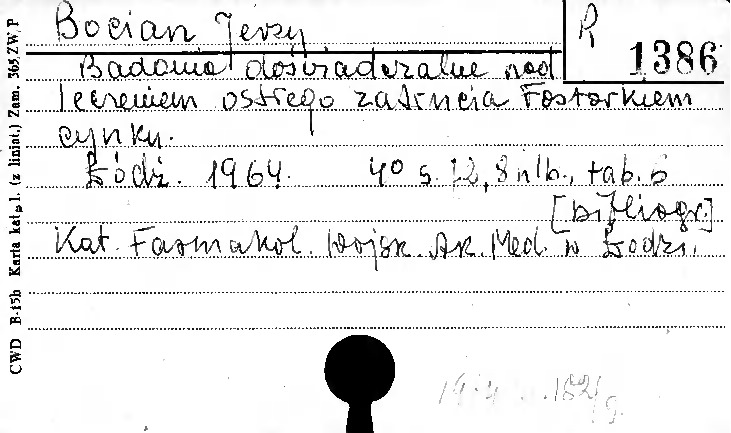 Bocian Jerzy
R 1386
Badania doświadczalne nad
leczeniem ostrego zatrucia Fosforkiem
cynku.
Łódź. 1964. 4° s. 72, 8 nlb., tab. 6
[bibliogr.]
Kat. Farmakol. Wojsk. Ak. Med. w Łodzi.
CWD B-15b Karta kat. l. (z liniat.) Zam. 365 ZW P